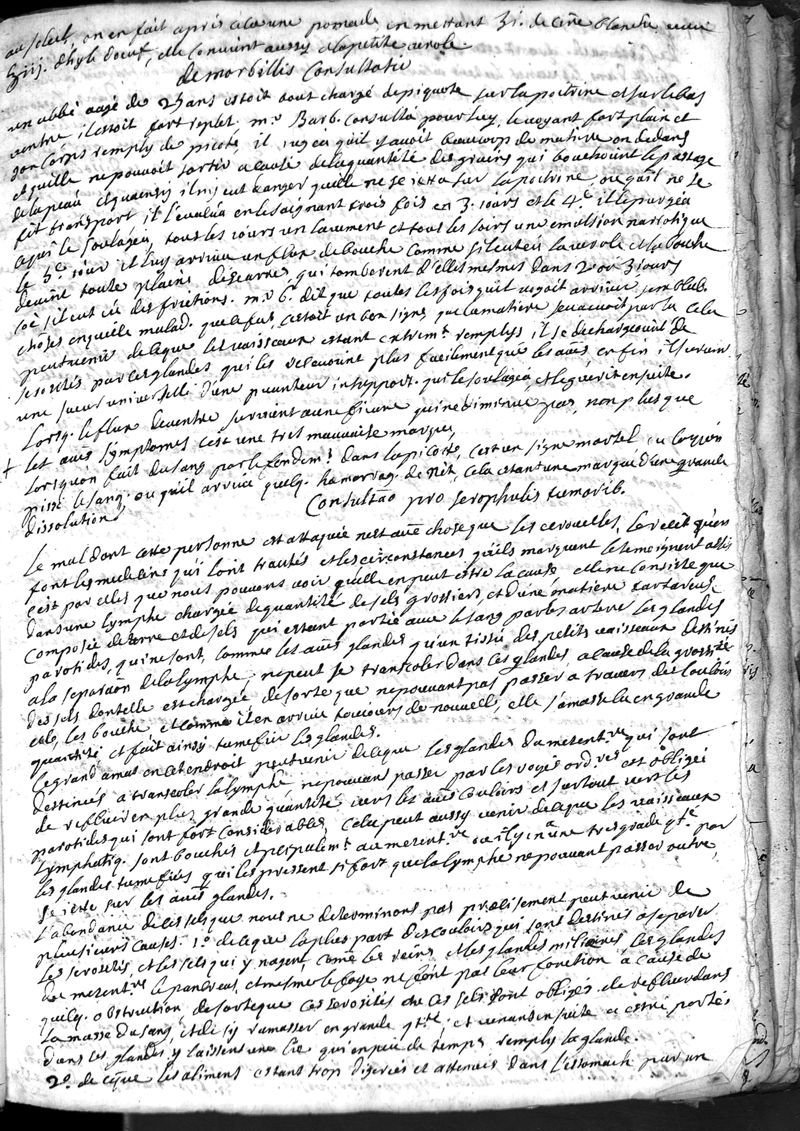 au soleil, on en fait apres cela une pomade en mettant ʒi. de cire blanche avec
ʒiij. d'hyle d'oeuf, elle convient aussy a la petite verole
de morbillis Consultatio
un abbé aagé de 25 ans estoit tout chargé de picote sur la poitrine et sur le bas
ventre il estoit fort replet. mr. Barb. consulta pour luy, le voyant fort plain et
son corps remply de picote, il jugea qu'il y avoit beaucoup de matiere au dedans
et qu'elle ne pouvoit sortir a cause de la quantité des grains qui bouchoient le passage
de la peau et qu'ainsy il y eut danger qu'elle ne se jetta sur la poitrine ou qu'il ne se
fit transport il l'evacua en le saignant trois fois en 3. jours et le 4e. il le purgea
ce qui le soulagea, tous les jours un lavement et tous les soirs une emulsion narcotique
le 5e. jour il luy arriva un flux de bouche comme s'il eut eu la verole et la bouche
devint toute plaine d'escarres qui tomberent d'elles mesmes dans 2 ou 3 jours
s'il eut eu des frictions. mr. B. dit que toutes les fois qu'il voyoit arriver semblab.
choses en quelle malad. que ce fut, c'estoit un bon signe que la matiere s'evacuoit par la cela
peut venir de ce que les vaisseaux estant extremt. remplys il se dechargeoint de
serosités par ces glandes qui les recevoint plus facilement que les aues enfin il survint
une sueur universelle d'une puanteur insupport. qui le soulagea et le guerit ensuite.
Lorsq. le flux de ventre survient a une fievre qui ne diminue pas, non plus que
les aues symptomes c'est une tres mauvaise marque,
Lorsqu'on fait du sang par le fondemt. dans la picote, c'est un signe mortel ou lorsqu'on
pisse le sang. ou qu'il arrive quelq. hamorrag. de nés, cela estant une marque d'une grande
dissolution.
Consultaō pro scrophulis tumorib.
Le mal dont cette personne est attaquée n'est aue chose que les ecrouelles, le recit qu'en
font les medecins qui l'ont traités et les circonstances qu'ils marquent le temoignent assés
c'est par elles que nous pouvons voir qu'elle en peut estre la cause, elle ne consiste que
dans une lymphe chargée de quantité de sels grossiers, et d'une matiere tartareuse
composée de terre et de sels qui estant portée avec le sang par les arteres les glandes
parotides, qui ne sont, comme les aues glandes qu'un tissu des petits vaisseaux destinés
a la separaōn de la lymphe, ne peut se transcoler dans ces glandes, a cause de la grossrté
des sels dont elle est chargée de sorte que ne pouvant pas passer a travers des couloirs
cela les bouche, et comme il en arrive toujours de nouvelle, elle s'amasse la en grande
quantité et fait ainsy tumefier les glandes.
Le grand amas en cet endroit peut venir de ce que les glandes du mezentre. qui sont
destinées a transcoler la lymphe, ne pouvant passer par les voyes ordres. est obligée
de refluer en plus grande quantité vers les aues couloirs et surtout vers les
parotides qui sont fort considerables, Cela peut aussy venir de ce que les vaisseaux
lymphatiq. sont bouchés et principalemt. au mezentre. ou il y en a une tres grade qté. par
les glandes tumefiées qui les pressent si fort que la lymphe ne pouvant passer outre,
se jette sur les aues glandes.
L'abondance de ces sels que nous ne determinons pas præcisement peut venir de
plusieurs causes. 1º. de ce que la plus part des couloirs qui sont destinés a separer
les serosités, et les sels qui y nagent, come les reins et les glandes miliaires, les glandes
du mezentre. le pancreas, et mesme le foye ne font pas leur fonction a cause de
quelq. obstruction de sorte que ces serosités et ces sels sont obligés de refluer dans
la masse du sang, et de s'y ramasser en grande qté. et venans ensuite a estre portés
dans ces glandes y laissent une lie qui en peu de temps remplys la glande.
2º. de ce que les aliment estant trop digerés et attenués dans l'estomach par un